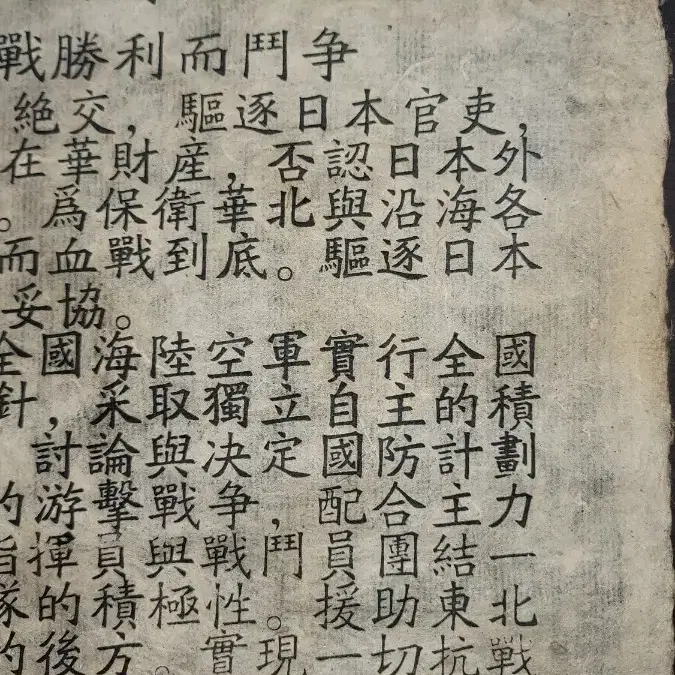 戰勝利而鬥争
絶交，驅逐日本官吏，
在華財産，否認日本外
。爲保衛華北與沿海各
而血戰到底。驅逐日本
妥協。
全國海陸空軍實行全國
針，采取獨立自主的積
討論與决定國防計劃
的游擊戰争，配合主力
指揮員與戰鬥員團結一
隊的積極性。援助東北
的後方。實現一切抗戰